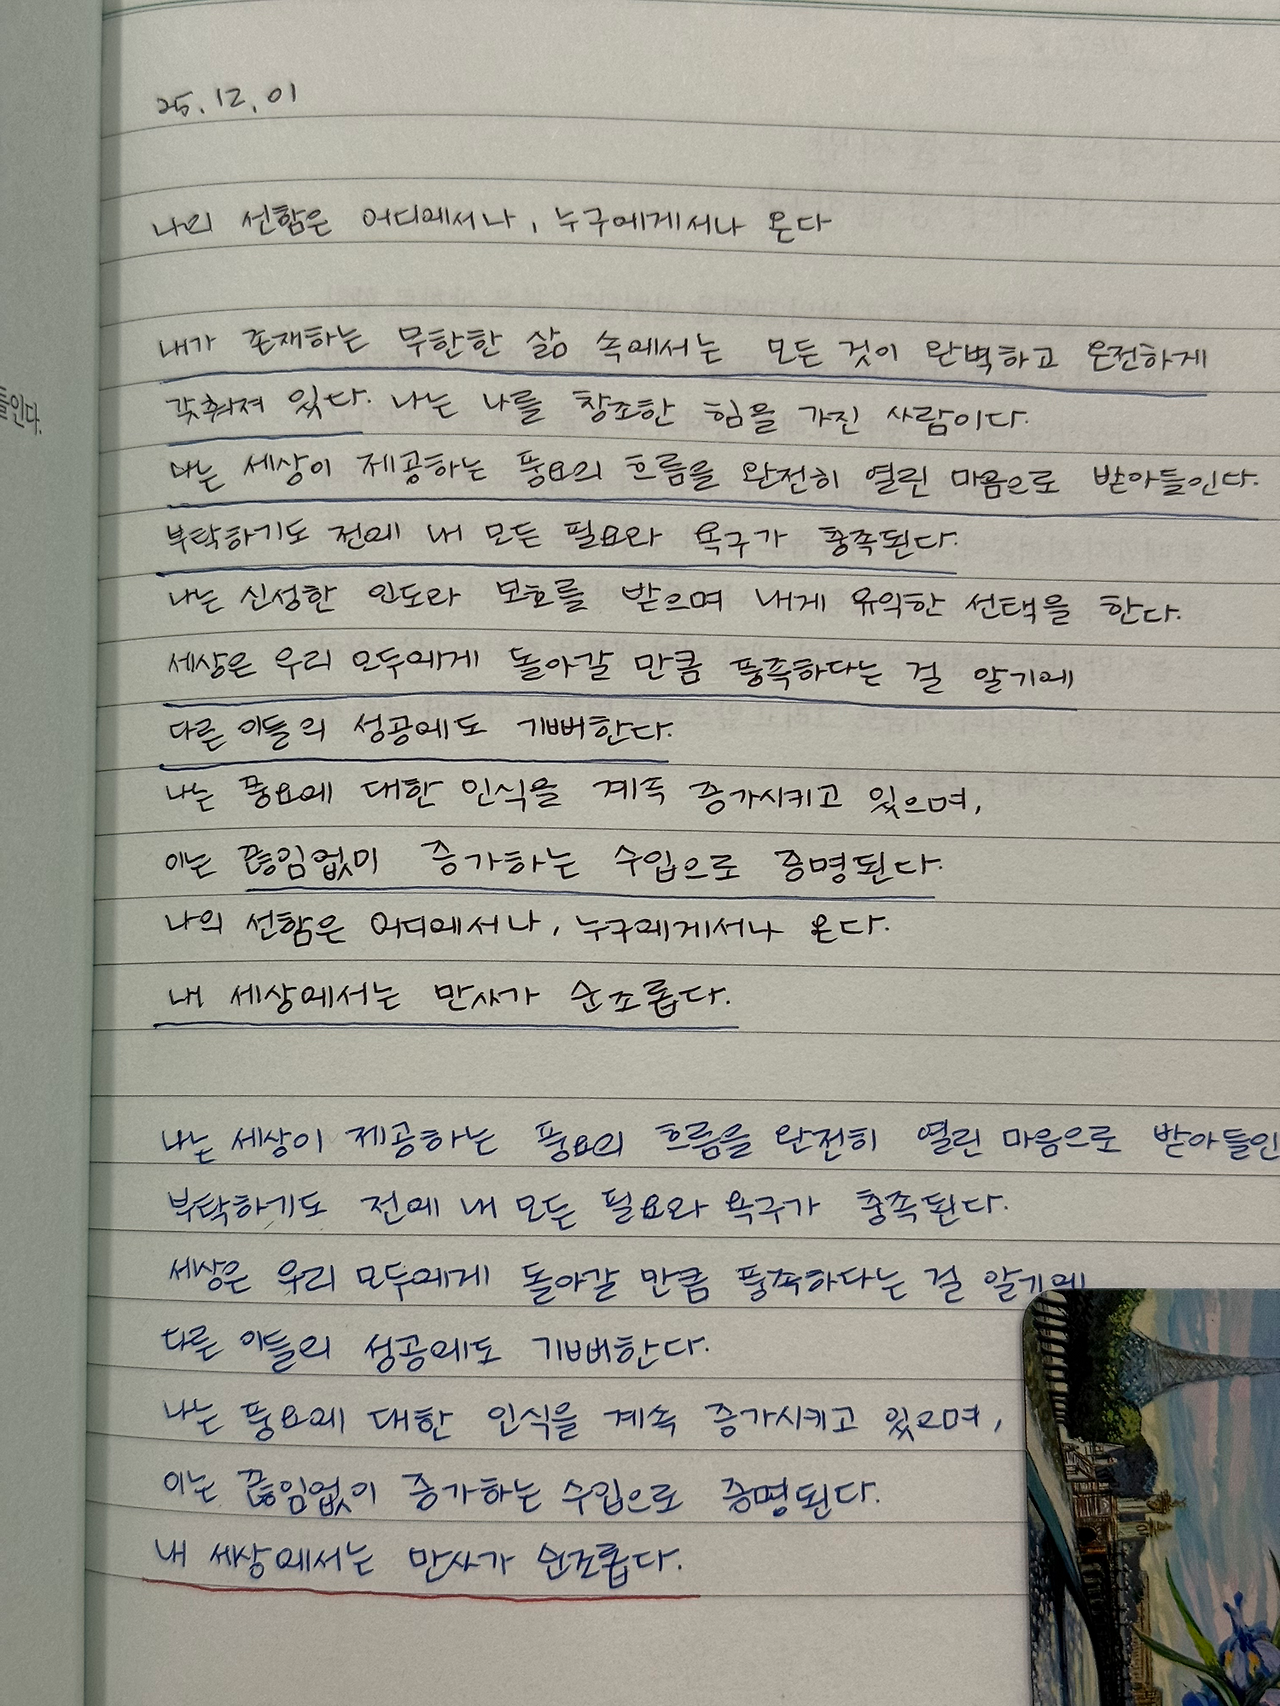 25.12.01
나의 선함은 어디에서나, 누구에게서나 온다
내가 존재하는 무한한 삶 속에서는 모든 것이 완벽하고 온전하게
갖춰져 있다. 나는 나를 창조한 힘을 가진 사람이다.
나는 세상이 제공하는 풍요의 흐름을 완전히 열린 마음으로 받아들인다.
부탁하기도 전에 내 모든 필요와 욕구가 충족된다.
나는 신성한 인도와 보호를 받으며 내게 유익한 선택을 한다.
세상은 우리 모두에게 돌아갈 만큼 풍족하다는 걸 알기에
다른 이들의 성공에도 기뻐한다.
나는 풍요에 대한 인식을 계속 증가시키고 있으며,
이는 끊임없이 증가하는 수입으로 증명된다.
나의 선함은 어디에서나, 누구에게서나 온다.
내 세상에서는 만사가 순조롭다.
나는 세상이 제공하는 풍요의 흐름을 완전히 열린 마음으로 받아들인
부탁하기도 전에 내 모든 필요와 욕구가 충족된다.
세상은 우리 모두에게 돌아갈 만큼 풍족하다는 걸 알기에
다른 이들의 성공에도 기뻐한다.
나는 풍요에 대한 인식을 계속 증가시키고 있으며,
이는 끊임없이 증가하는 수입으로 증명된다.
내 세상에서는 만사가 순조롭다.